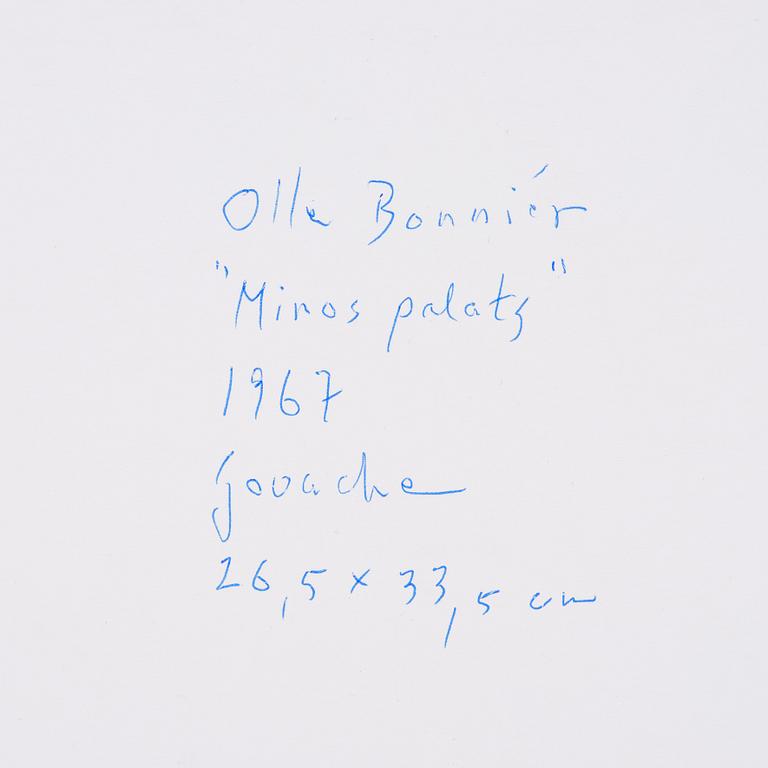 Olle Bonniér
"Minos palats"
1967
Gouache
26,5 x 33,5 cm